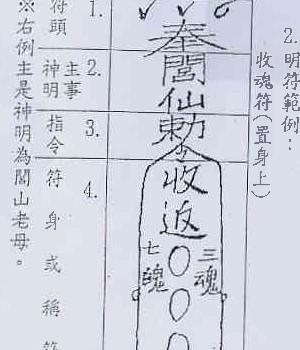 2. 明符範例：
收魂符(置身上)
奉閭仙勅令收返○○○
三魂
七魄
1. 符頭
2. 主事神明
3. 指令
4. 符身或稱符
※右例主是神明為閭山老母。